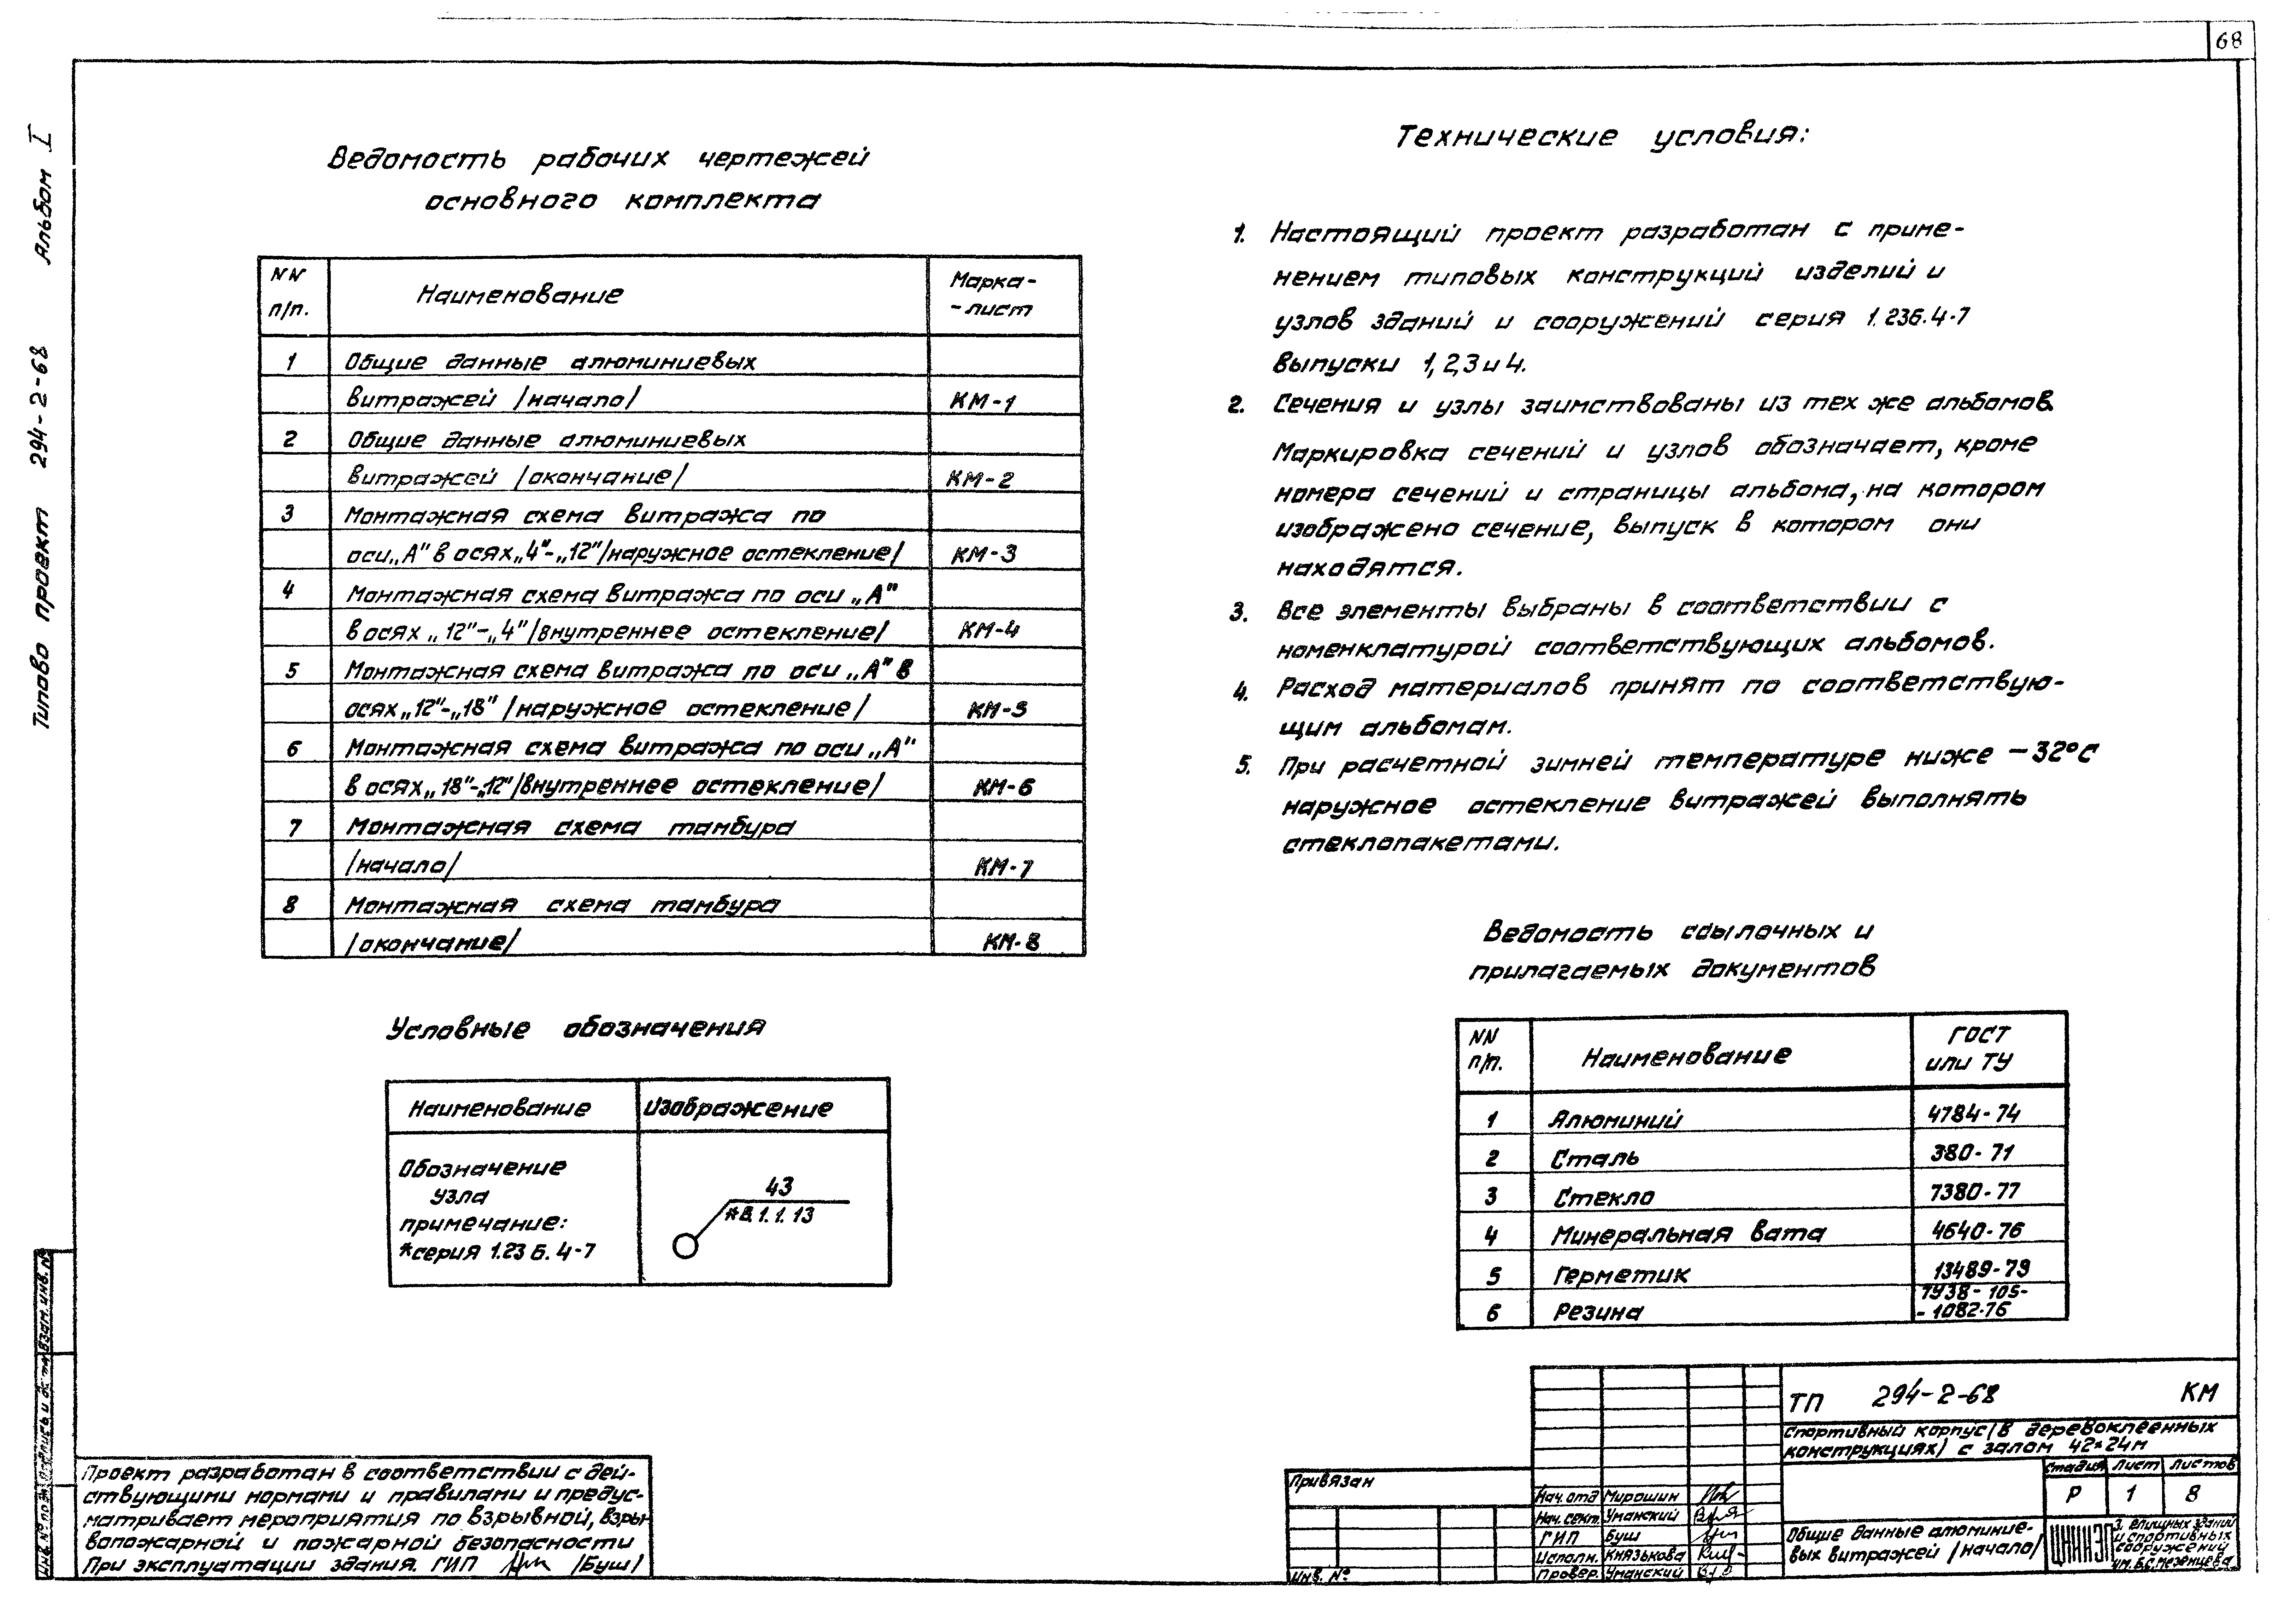 68
Альбом I
Типово проект 294-2-68
Ведомость рабочих чертежей
основного комплекта
NN п/п. Наименование Марка--лист
1 Общие данные алюминиевых
витражей /начало/ КМ-1
2 Общие данные алюминиевых
витражей /окончание/ КМ-2
3 Монтажная схема витража по
оси „А" в осях „4"-„12" /наружное остекление/ КМ-3
4 Монтажная схема витража по оси „А"
в осях „12"-„4" /внутреннее остекление/ КМ-4
5 Монтажная схема витража по оси „А" в
осях „12"-„18" /наружное остекление/ КМ-5
6 Монтажная схема витража по оси „А"
в осях „18"-„12" /внутреннее остекление/ КМ-6
7 Монтажная схема тамбура
/начало/ КМ-7
8 Монтажная схема тамбура
/окончание/ КМ-8
Условные обозначения
Наименование Изображение
Обозначение
узла
примечание:
*серия 1.236.4-7
43
*В.1.1.13
Технические условия:
1. Настоящий проект разработан с приме-
нением типовых конструкций изделий и
узлов зданий и сооружений серия 1.236.4-7
выпуски 1,2,3 и 4.
2. Сечения и узлы заимствованы из тех же альбомов.
Маркировка сечений и узлов обозначает, кроме
номера сечений и страницы альбома, на котором
изображено сечение, выпуск в котором они
находятся.
3. Все элементы выбраны в соответствии с
номенклатурой соответствующих альбомов.
4. Расход материалов принят по соответствую-
щим альбомам.
5. При расчетной зимней температуре ниже -32°С
наружное остекление витражей выполнять
стеклопакетами.
Ведомость ссылочных и
прилагаемых документов
NN п/п. Наименование ГОСТ или ТУ
1 Алюминий 4784-74
2 Сталь 380-71
3 Стекло 7380-77
4 Минеральная вата 4640-76
5 Герметик 13489-79
6 Резина ТУ38-105-
-1082-76
Взам. инв. №
Подпись и дата
Инв. № подл
Проект разработан в соответствии с дей-
ствующими нормами и правилами и предус-
матривает мероприятия по взрывной, взры-
вопожарной и пожарной безопасности
При эксплуатации здания. ГИП /Буш/
Привязан
Инв. №
Нач. отд Мирошин
Нач. сект. Уманский
ГИП Буш
Исполн. Князькова
Провер. Уманский
ТП 294-2-68 КМ
Спортивный корпус (в деревоклеенных
конструкциях) с залом 42×24м
стадия лист листов
Р 1 8
Общие данные алюминие-
вых витражей /начало/
ЦНИИЭП
зрелищных зданий
и спортивных
сооружений
им. Б.С. Мезенцева